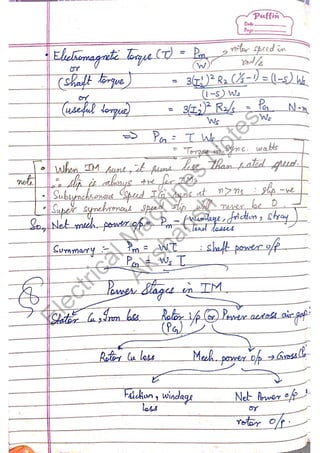 Puffin
Date
Page
• Electromagnetic Torque (T) = Pm → rotor speed in
or (W) rad/s
(Shaft torque) = 3(I2')² R2 (1/s - 1) = (1-s) Ws
or (1-s) Ws
(useful torque) = 3(I2')² R2/s = PG N-m
Ws Ws
⇒ PG = T Ws
= Torque in sync. watts
note
• When IM runs, it runs less than rated speed.
∴ slip is always +ve for IM
• Subsynchronous speed IG runs at n>ns : slip -ve
• Super synchronous speed never be 0
So, Net mech. power o/p = Pm - (windage, friction, stray)
load losses
Summary :- Pm = WT : Shaft power o/p
PG = Ws T
8
Power Stages in IM.
Stator Cu, Iron loss Rotor i/p or Power across air gap
(PG)
Rotor Cu loss Mech. power o/p → Gross
Friction, windage Net Power o/p
loss or
rotor o/p.
Electrical Machines Notes